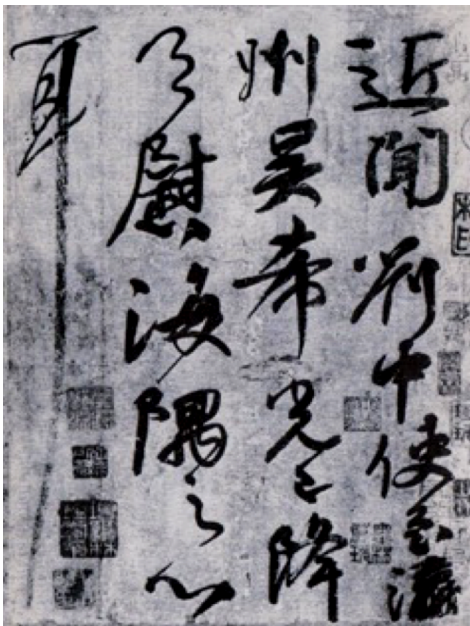 近聞劉中使至瀛
州吳希光已降
足慰海隅之心
耳